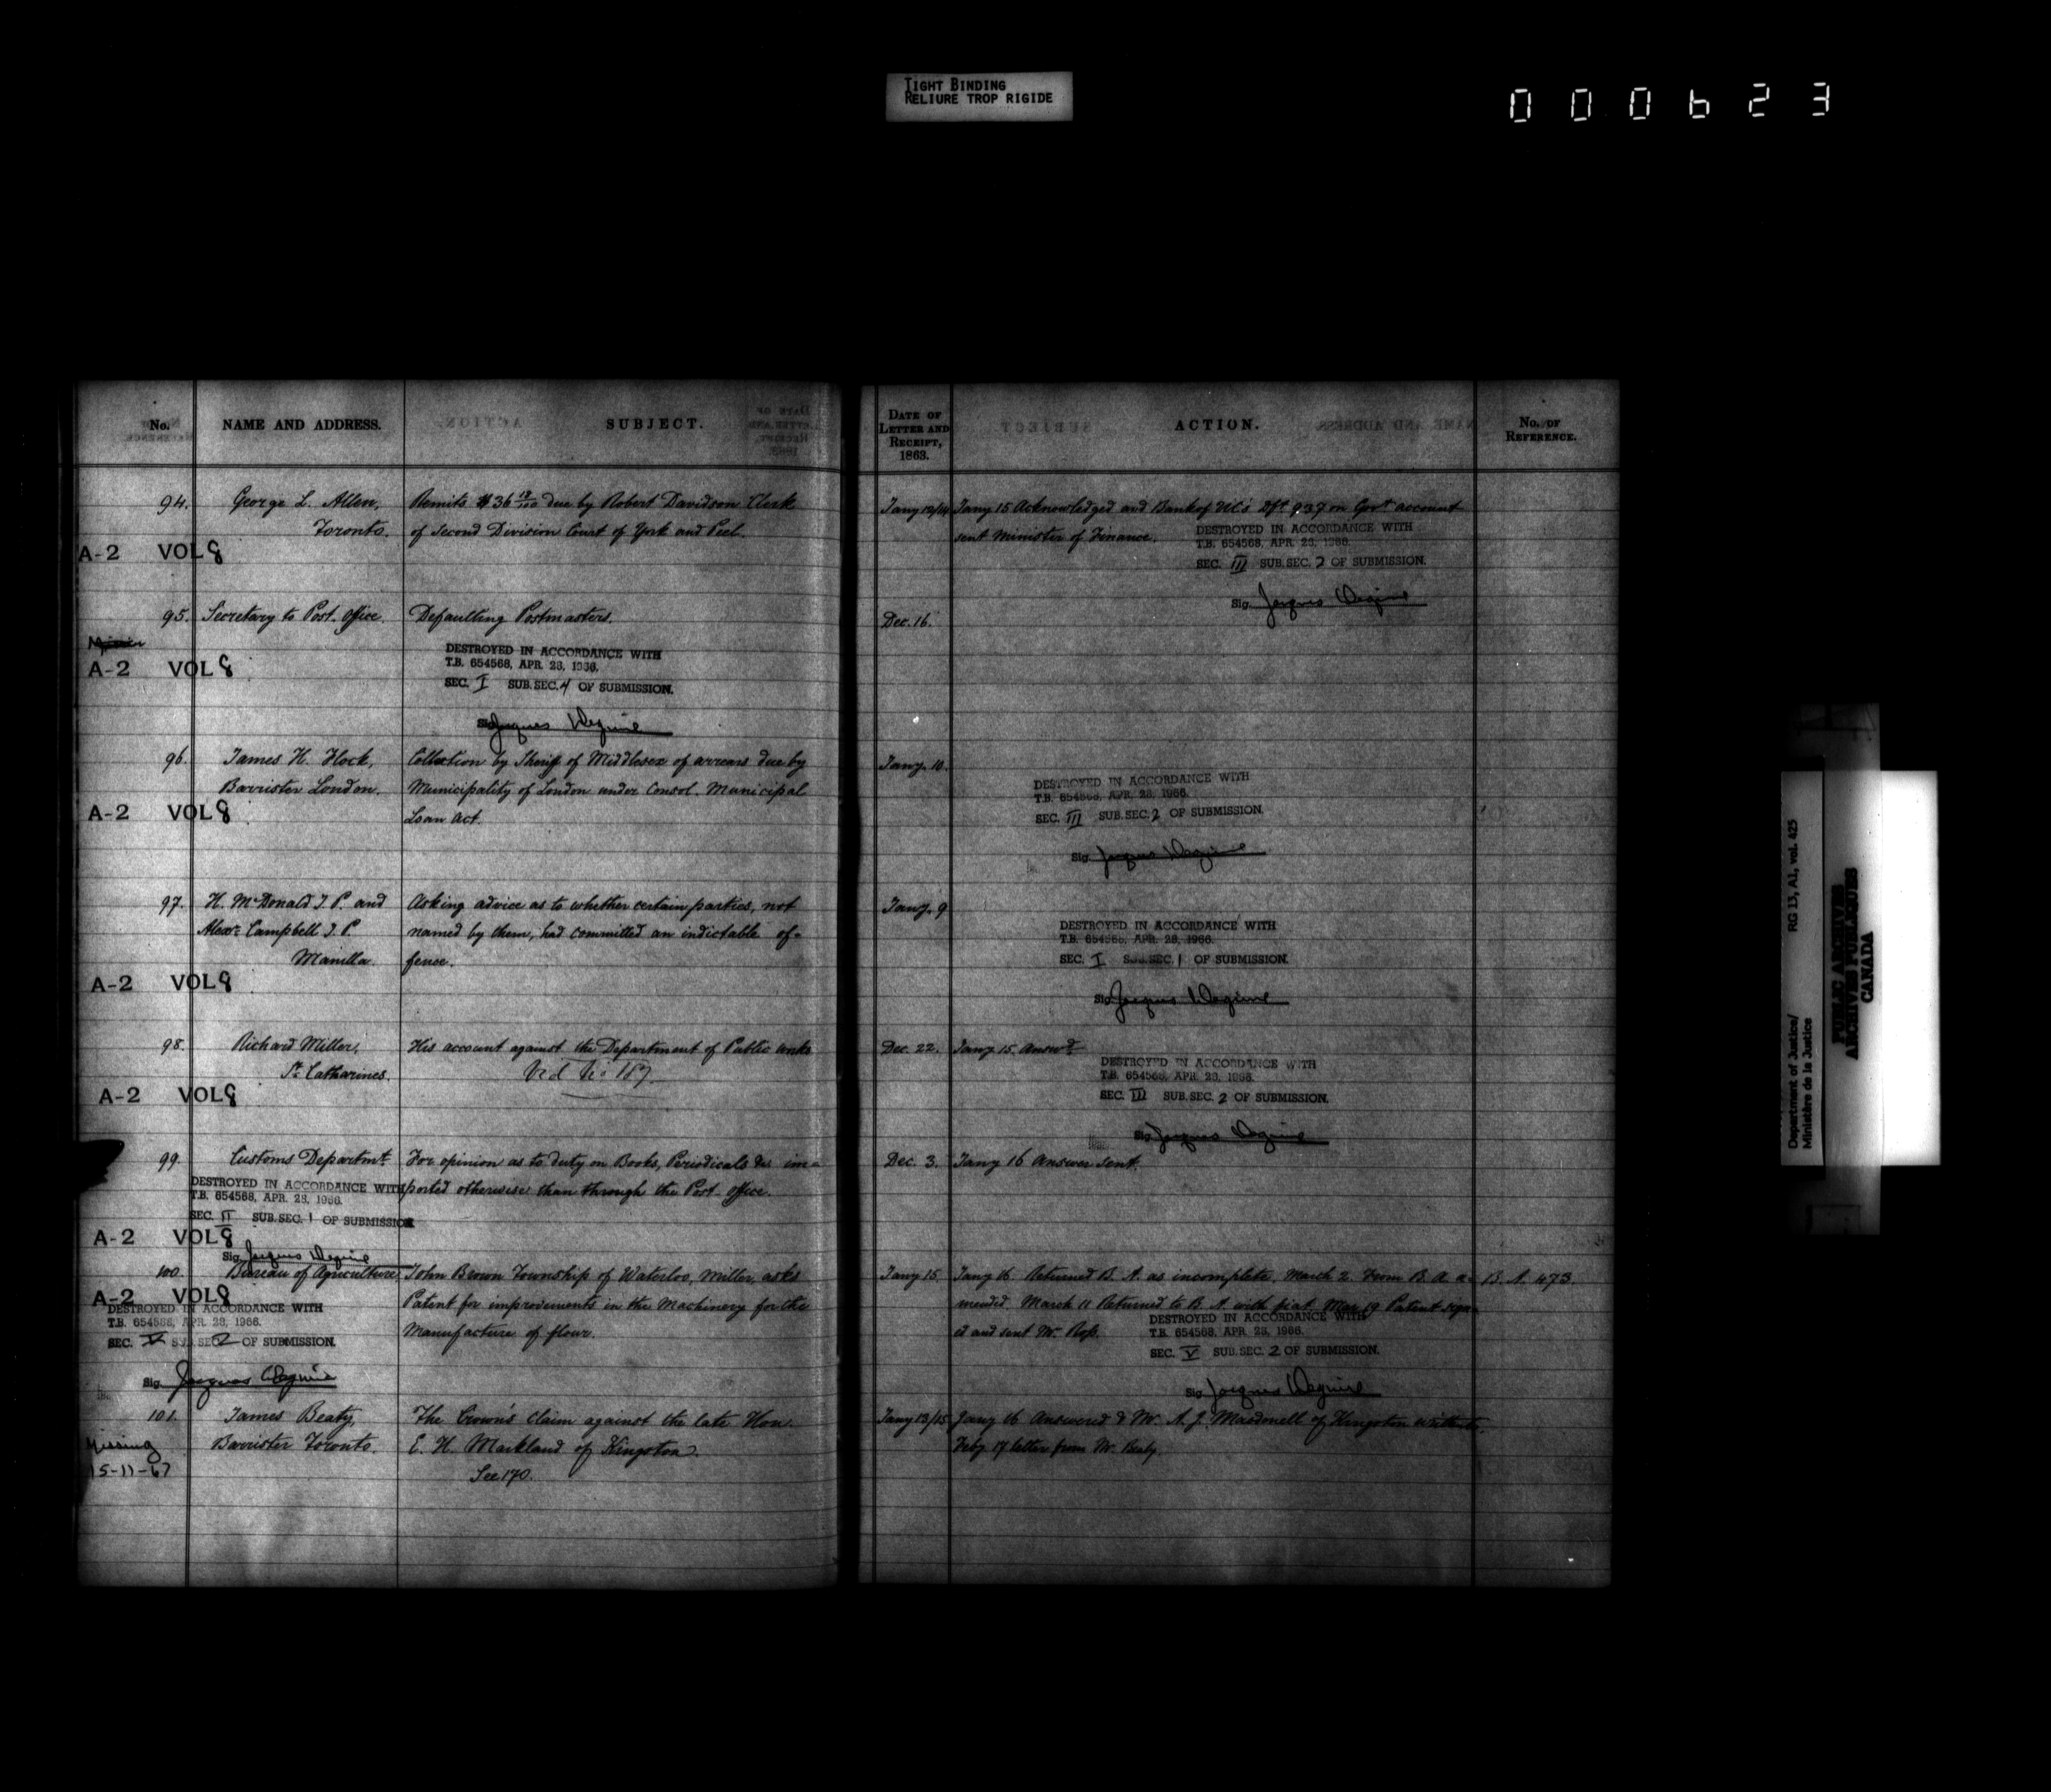 TIGHT BINDING
RELIURE TROP RIGIDE
000623
No. NAME AND ADDRESS. SUBJECT.
DATE OF LETTER AND RECEIPT, 1863. ACTION. No. OF REFERENCE.
94. George L. Allen, Remits $36 18/100 due by Robert Davidson Clerk
Toronto. of Second Division Court of York and Peel.
A-2 VOL 8
Jany 13/14 Jany 15 Acknowledged and Bank of U.C's Dft 937 on Govt account
sent Minister of Finance.
DESTROYED IN ACCORDANCE WITH
T.B. 654568, APR. 28, 1966.
SEC. III SUB.SEC. 2 OF SUBMISSION.
Sig. Jacques
95. Secretary to Post. Office. Defaulting Postmasters.
Dec. 16.
A-2 VOL 8
DESTROYED IN ACCORDANCE WITH
T.B. 654568, APR. 28, 1966.
SEC. I SUB.SEC. 4 OF SUBMISSION.
Sig. Jacques
96. James H. Flock, Collection by Sheriff of Middlesex of arrears due by
Barrister London. Municipality of London under Consol. Municipal
A-2 VOL 8
Loan Act.
Jany. 10.
DESTROYED IN ACCORDANCE WITH
T.B. 654568, APR. 28, 1966.
SEC. III SUB.SEC. 2 OF SUBMISSION.
Sig. Jacques
97. H. McDonald J.P. and Asking advice as to whether certain parties, not
Alexr. Campbell J.P. named by them, had committed an indictable of-
Manilla. fence.
A-2 VOL 8
Jany. 9
DESTROYED IN ACCORDANCE WITH
T.B. 654568, APR. 28, 1966.
SEC. I SUB.SEC. 1 OF SUBMISSION.
Sig. Jacques
98. Richard Miller, His account against the Department of Public Works
St. Catharines. Vid No 187.
A-2 VOL 8
Dec. 22. Jany 15 Answd.
DESTROYED IN ACCORDANCE WITH
T.B. 654568, APR. 28, 1966.
SEC. III SUB.SEC. 2 OF SUBMISSION.
Sig. Jacques
99. Customs Departmt. For opinion as to duty on Books, Periodicals &c im-
ported otherwise than through the Post. Office.
DESTROYED IN ACCORDANCE WITH
T.B. 654568, APR. 28, 1966.
SEC. II SUB.SEC. 1 OF SUBMISSION
A-2 VOL 8
Sig. Jacques
Dec. 3. Jany 16 Answer sent.
100. Bureau of Agriculture John Brown Township of Waterloo, Miller, asks
A-2 VOL 8
Patent for improvements in the Machinery for the
Manufacture of flour.
DESTROYED IN ACCORDANCE WITH
T.B. 654568, APR. 28, 1966.
SEC. V SUB.SEC. 2 OF SUBMISSION.
Sig. Jacques
Jany 15. Jany 16 Returned B.A. as incomplete. March 2. From B.A. a- B.A. 473.
mended. March 11 Returned to B.A. with fiat. Mar 19 Patent sign-
ed and sent Mr. Ross.
DESTROYED IN ACCORDANCE WITH
T.B. 654568, APR. 28, 1966.
SEC. V SUB.SEC. 2 OF SUBMISSION.
Sig. Jacques
101. James Beaty, The Crown's claim against the late Hon.
Barrister Toronto. E. H. Markland of Kingston.
See 170.
Missing
15-11-67
Jany 13/15 Jany 16 Answered & Mr. A. J. Macdonell of Kingston written to.
Feby 17 letter from Mr. Beaty.
Department of Justice/ RG 13, A1, vol. 425
Ministère de la Justice
PUBLIC ARCHIVES
ARCHIVES PUBLIQUES
CANADA